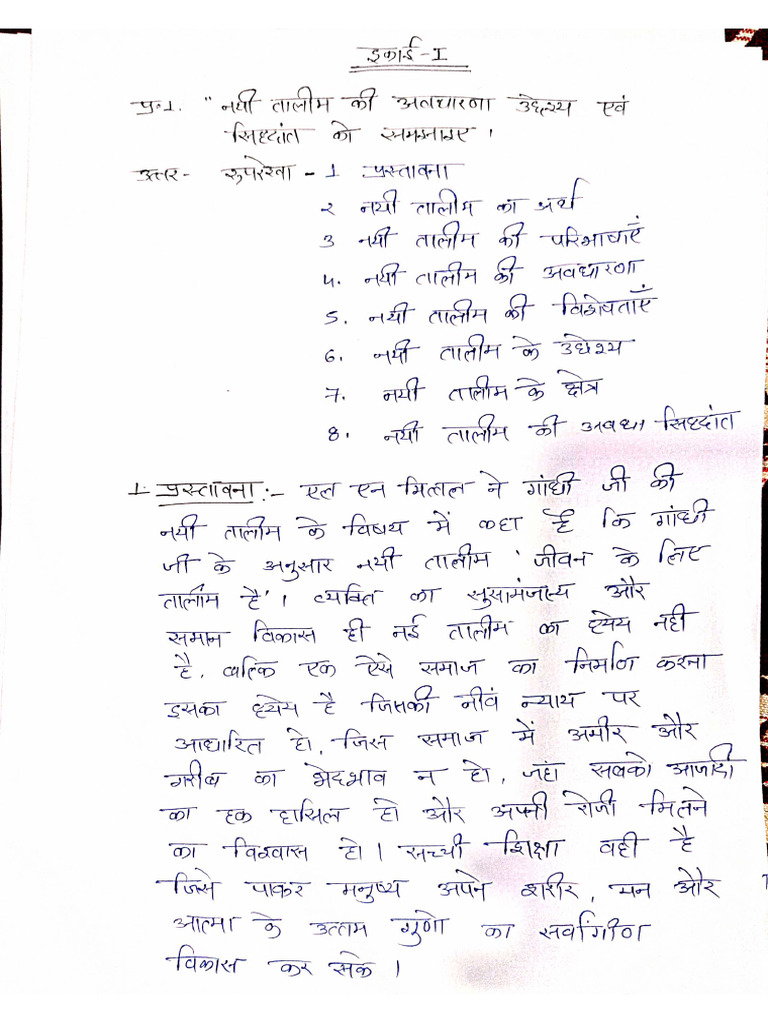 इकाई-I
प्र.1. "नयी तालीम की अवधारणा उद्देश्य एवं
सिद्धांत को समझाइए ।
उत्तर- रुपरेखा - 1. प्रस्तावना
२ नयी तालीम का अर्थ
3 नयी तालीम की परिभाषाएँ
4. नयी तालीम की अवधारणा
5. नयी तालीम की विशेषताएँ
6. नयी तालीम के उद्देश्य
7. नयी तालीम के क्षेत्र
8. नयी तालीम की अवधा सिद्धांत
1. प्रस्तावना :- एल एन मित्तल ने गांधी जी की
नयी तालीम के विषय में कहा है कि गांधी
जी के अनुसार नयी तालीम 'जीवन के लिए
तालीम है'। व्यक्ति का सुसामंजस्य और
समान विकास ही नई तालीम का ध्येय नही
है, बल्कि एक ऐसे समाज का निर्माण करना
इसका ध्येय है जिसकी नीवं न्याय पर
आधारित हो, जिस समाज में अमीर और
गरीब का भेदभाव न हो, जहां सबको आजादी
का हक हासिल हो और अपनी रोजी मिलने
का विश्वास हो। सच्ची शिक्षा वही है
जिसे पाकर मनुष्य अपने शरीर, मन और
आत्मा के उत्तम गुणो का सर्वागीण
विकास कर सके ।